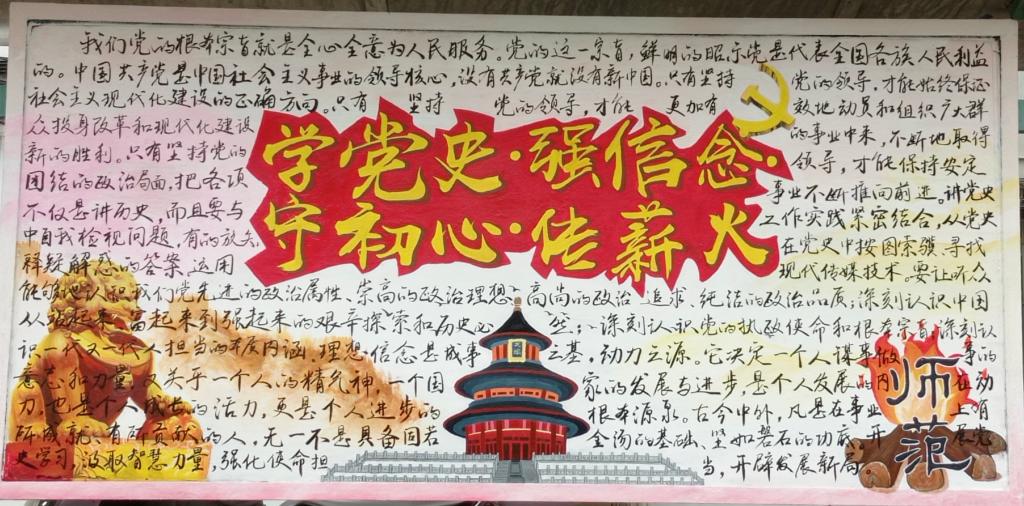 我们党的根本宗旨就是全心全意为人民服务。党的这一宗旨,鲜明的昭示党是代表全国各族人民利益
的。中国共产党是中国社会主义事业的领导核心,没有共产党就没有新中国。只有坚持 党的领导,才能始终保证
社会主义现代化建设的正确方向。只有 坚持 党的领导,才能 更加有 效地动员和组织广大群
众投身改革和现代化建设 的事业中来,不断地取得
新的胜利。只有坚持党的 领导,才能保持安定
团结的政治局面,把各项 事业不断推向前进。讲党史
不仅是讲历史,而且要与 工作实践紧密结合,从党史
中自我检视问题,有的放矢 在党史中按图索骥,寻找
释疑解惑的答案,运用 现代传媒技术。要让听众
能够地认识我们党先进的政治属性、崇高的政治理想、高尚的政治 追求、纯洁的政治品质;深刻认识中国
从站起来、富起来到强起来的艰辛探索和历史必 然;深刻认识党的执政使命和根本宗旨,深刻认
识一代又一代人担当的丰厚内涵,理想信念是成事 之基,动力之源。它决定一个人谋事做 事的
意志和力量,仅关乎一个人的精气神,一个国 家的发展与进步,是个人发展的内 在动
力,也是个人成长的活力,更是个人进步的 根本源泉。古今中外,凡是在事业 上有
所成就、有所贡献的人,无一不是具备固若 金汤的基础、坚如磐石的功底。开 展党
史学习,汲取智慧力量,强化使命担 当,开辟发展新局
学党史·强信念·
守初心·传薪火
师
范